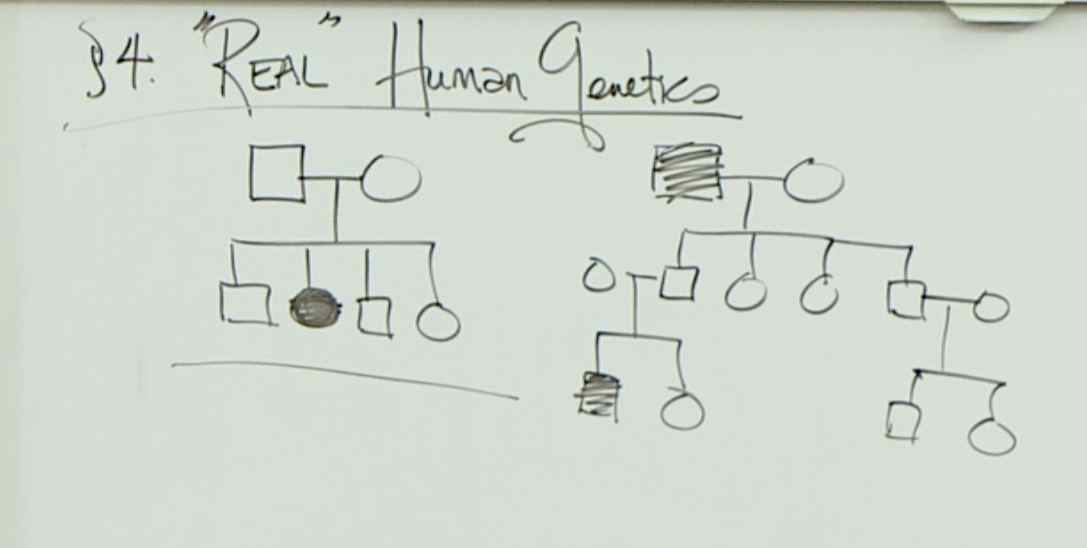 §4. "REAL" Human Genetics